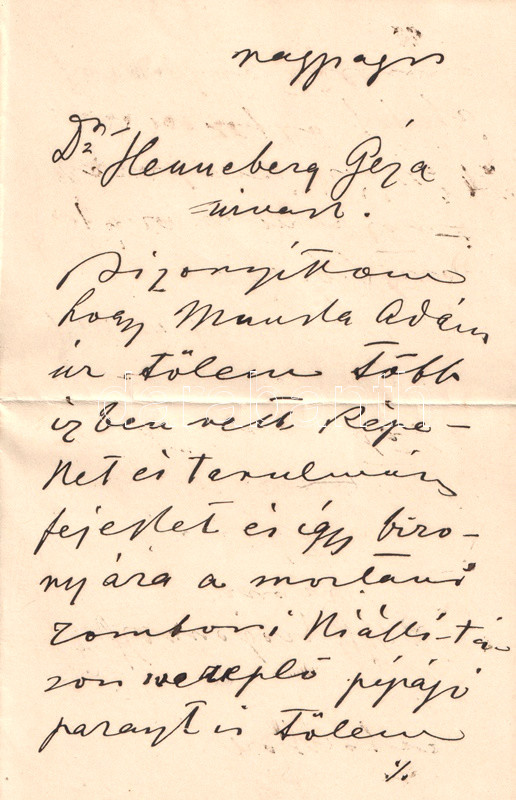 nagysagos
Dr Henneberg Géza
urnak.
Bizonyitom
hogy Munda Adám
úr tölem több
izben vett képe-
ket és tanulmány
fejeket és így bizo-
nyára a mostani
zombori kiállitá-
son szereplö pipázó
parasztis tölem
./.
darabanth